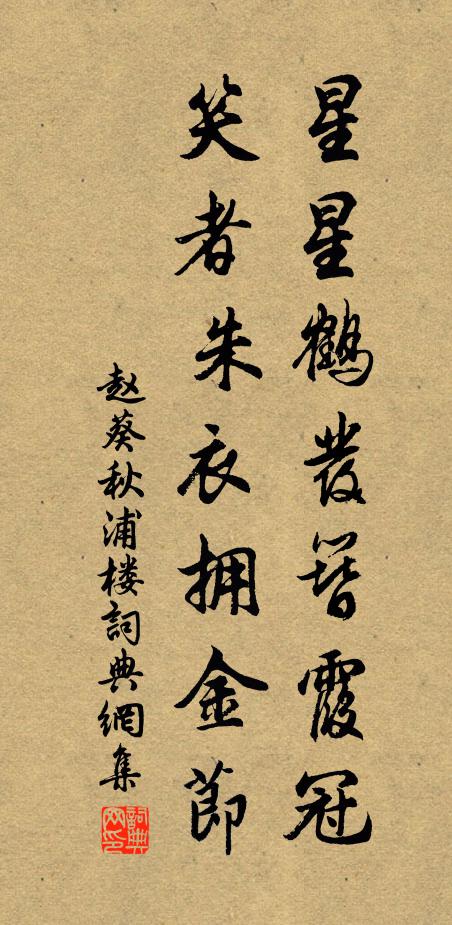 星星鶴發簪霞冠
笑者朱衣拥金節
赵葵秋浦楼詞典網集
詞典網印